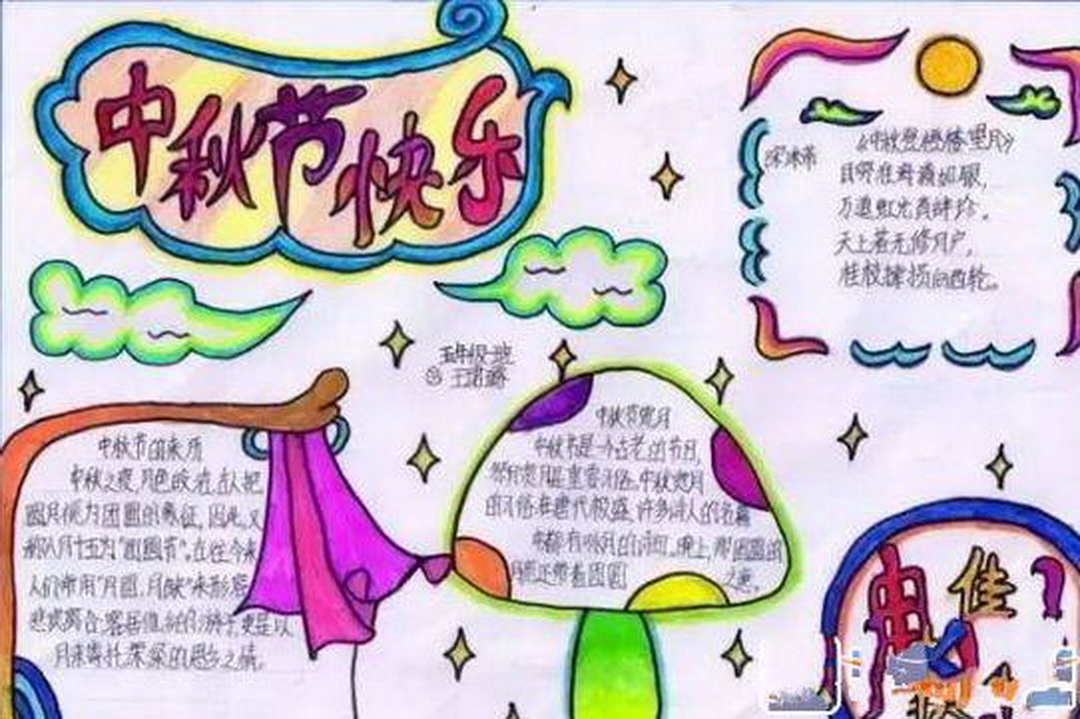 中秋节快乐
《中秋登楼望月》
目穷淮海满如银，
万道虹光育蚌珍。
天上若无修月户，
桂枝撑损向西轮。
五年级一班
中秋节的来历
中秋之夜，月色皎洁，古人把
圆月视为团圆的象征，因此，又
称八月十五为“团圆节”。古往今来
人们常用“月圆、月缺”来形容
悲欢离合，客居他乡的游子，更是以
月来寄托深深的思乡之情。
中秋节赏月
中秋节是一个古老的节日，
祭月赏月是重要习俗。中秋赏月
的习俗在唐代极盛，许多诗人的名篇
中都有咏月的诗句。晚上，那圆圆的
月饼还带着团圆
之意。
中
佳